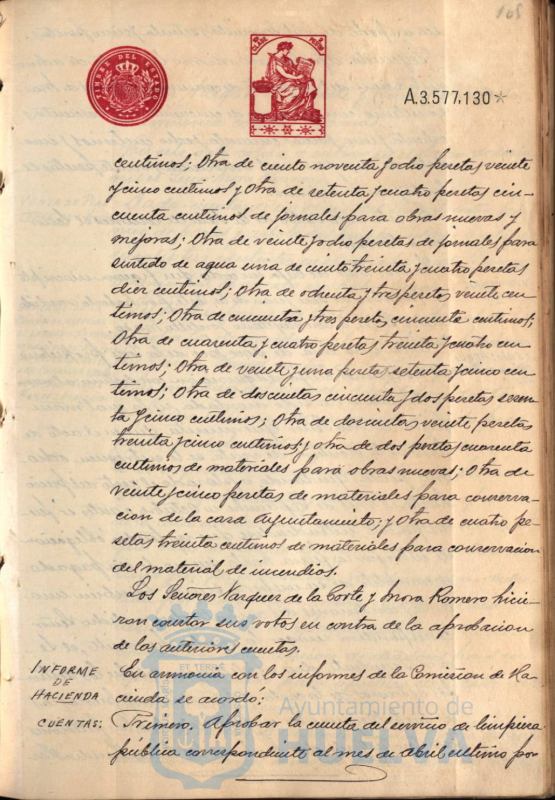 165
TIMBRE DEL ESTADO
A.3.577,130*
centimos; Otra de ciento noventa y ocho pesetas veinte
y cinco centimos y Otra de setenta y cuatro pesetas cin-
cuenta centimos de jornales para obras nuevas y
mejoras; Otra de veinte y ocho pesetas de jornales para
surtido de agua una de ciento treinta y cuatro pesetas
diez centimos; Otra de ochenta y tres pesetas veinte cen-
timos; Otra de cincuenta y tres pesetas cincuenta centimos;
Otra de cuarenta y cuatro pesetas treinta y cuatro cen-
timos; Otra de veinte y una pesetas setenta y cinco cen-
timos; Otra de doscuetas cincuenta y dos pesetas sesen-
ta y cinco centimos; Otra de doscientas veinte pesetas
treinta y cinco centimos; y otra de dos pesetas cuarenta
centimos de materiales para obras nuevas; Otra de
veinte y cinco pesetas de materiales para conserva-
cion de la casa Ayuntamiento; y Otra de cuatro pe-
setas treinta centimos de materiales para conservacion
del material de incendios.
Los Señores Vazquez de la Corte y Mora Romero hicie-
ron constar sus votos en contra de la aprobacion
de las anteriores cuentas.
INFORME DE HACIENDA
En armonia con los informes de la Comision de Ha-
cienda se acordó:
CUENTAS:
Primero. Aprobar la cuenta del servicio de limpieza
pública correspondiente al mes de Abril ultimo por
Ayuntamiento de
HUELVA